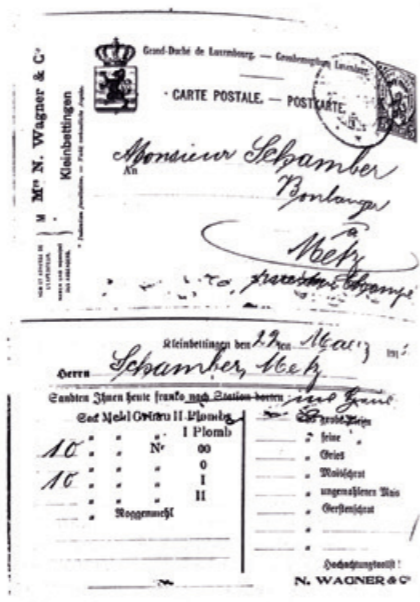 M
Mon N. Wagner & Co
Kleinbettingen
Grand-Duché de Luxembourg. — Grossherzogthum Luxemburg.
CARTE POSTALE. — POSTKARTE.
Monsieur Schamber
An
Boulanger
à
Metz
Kleinbettingen den 22ten März 191
Herrn Schamber, Metz
Sandten Ihnen heute franko nach Station dorten
Sack Mehl II Plombs
" " " I Plomb
10 " " Nr 00
" " " 0
10 " " " I
" " " II
" Roggenmehl
" grobe
" feine "
" Gries
" Maisschrot
" ungemahlenen Mais
" Gerstenschrot
"
Hochachtungsvollst!
N. WAGNER & Co